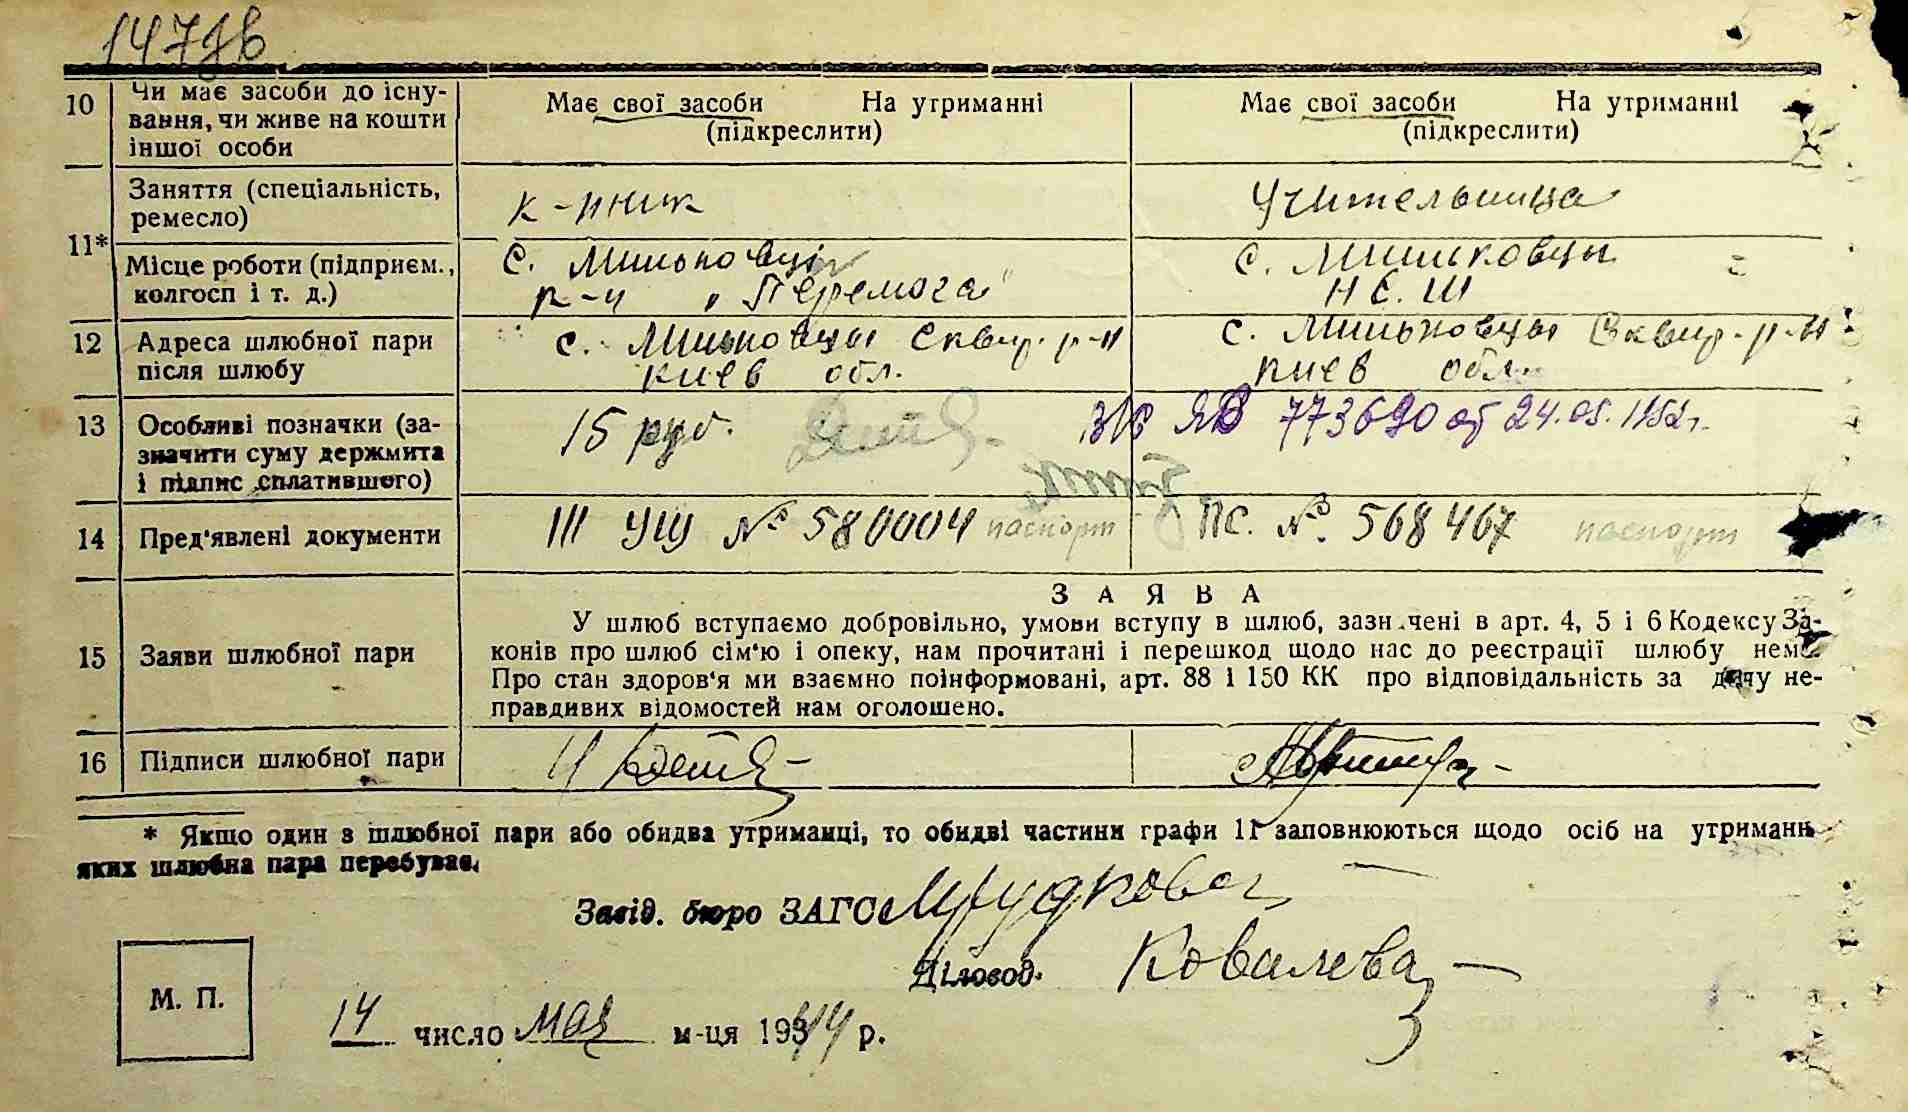 10 Чи має засоби до існу-
вання, чи живе на кошти
іншої особи
Має свої засоби На утриманні
(підкреслити)
Має свої засоби На утриманні
(підкреслити)
11*
Заняття (спеціальність,
ремесло)
к-пник
Учительница
Місце роботи (підприєм.,
колгосп і т. д.)
с. Миньковці
к-п „Перемога"
с. Миньковцы
НСШ
12 Адреса шлюбної пари
після шлюбу
с. Миньковцы Сквир. р-н
Киев обл.
с. Миньковцы Сквир. р-н
Киев обл.
13 Особливі позначки (за-
значити суму держмита
і підпис сплатившого)
15 руб.
ЯВ 773690 от 24.05.1952 г.
14 Пред'явлені документи
III УШ № 580004 паспорт
ПС. № 568467 паспорт
15 Заяви шлюбної пари
ЗАЯВА
У шлюб вступаємо добровільно, умови вступу в шлюб, зазн.чені в арт. 4, 5 і 6 Кодексу За-
конів про шлюб сім'ю і опеку, нам прочитані і перешкод щодо нас до реєстрації шлюбу нема.
Про стан здоров'я ми взаємно поінформовані, арт. 88 і 150 КК про відповідальність за дачу не-
правдивих відомостей нам оголошено.
16 Підписи шлюбної пари
* Якщо один з шлюбної пари або обидва утриманці, то обидві частини графи 11 заповнюються щодо осіб на утриманн
яких шлюбна пара перебуває.
Завід. бюро ЗАГС
Діловод. Ковалева
М. П.
14 число мая м-ця 1944 р.